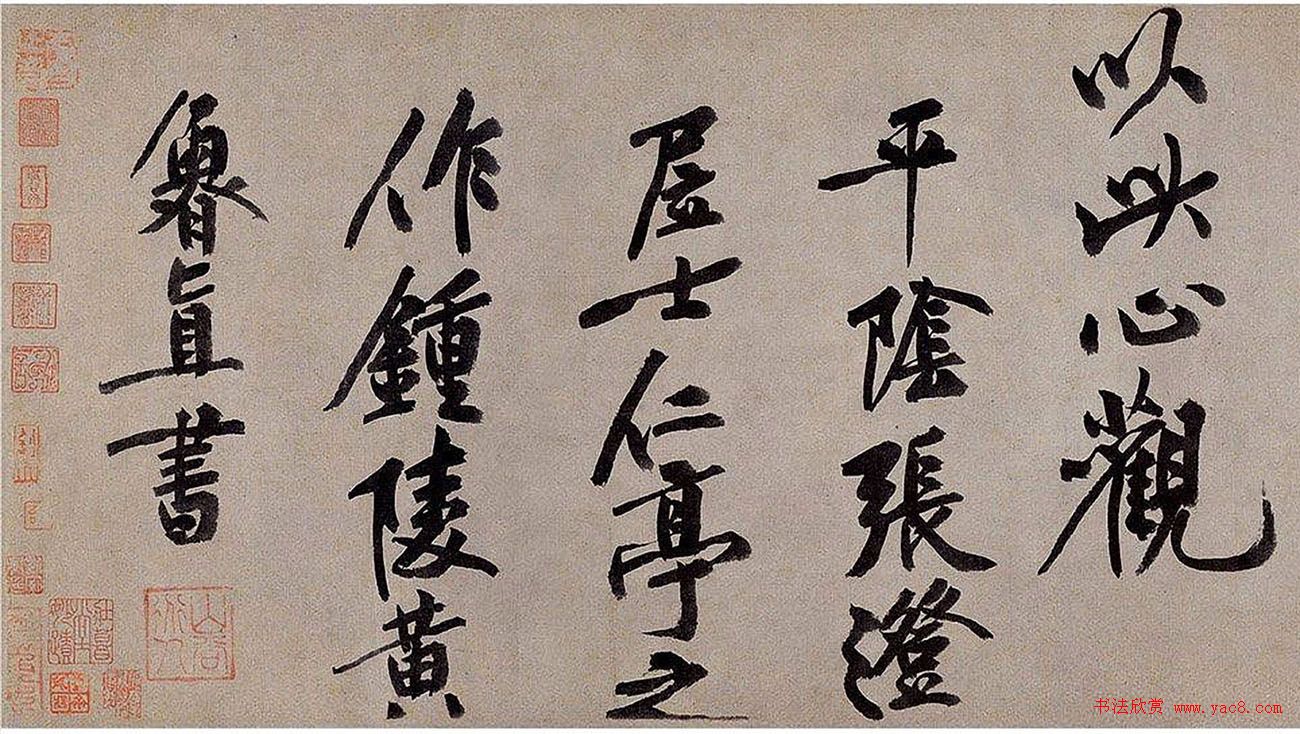 以此心觀
平陰張澄
居士仁亭之
作鍾陵黃
魯直書
书法欣赏 www.yac8.com